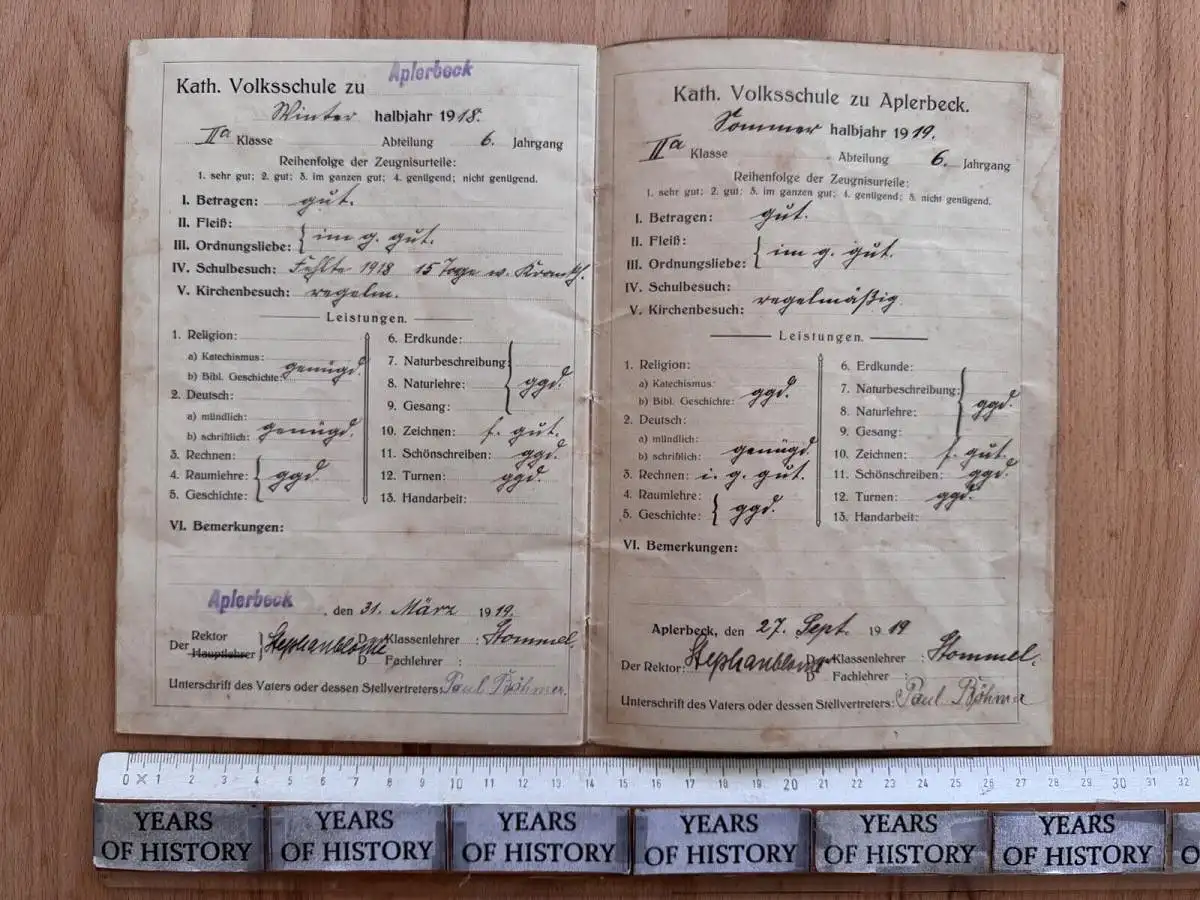 Kath. Volksschule zu Aplerbeck
Winter halbjahr 1918.
IIa Klasse Abteilung 6. Jahrgang
Reihenfolge der Zeugnisurteile:
1. sehr gut; 2. gut; 3. im ganzen gut; 4. genügend; nicht genügend.
I. Betragen: gut.
II. Fleiß:
III. Ordnungsliebe: im g. gut.
IV. Schulbesuch: Fehlte 1918 15 Tage w. Krankh.
V. Kirchenbesuch: regelm.
Leistungen.
1. Religion:
a) Katechismus:
b) Bibl. Geschichte: genügd.
2. Deutsch:
a) mündlich:
b) schriftlich: genügd.
3. Rechnen:
4. Raumlehre: ggd.
5. Geschichte:
6. Erdkunde:
7. Naturbeschreibung:
8. Naturlehre: ggd.
9. Gesang:
10. Zeichnen: s. gut.
11. Schönschreiben: ggd.
12. Turnen: ggd.
13. Handarbeit:
VI. Bemerkungen:
Aplerbeck, den 31. März 1919.
Der Rektor Hauptlehrer Stephanblome D Klassenlehrer: Stommel.
D Fachlehrer:
Unterschrift des Vaters oder dessen Stellvertreters: Paul Böhmer.
Kath. Volksschule zu Aplerbeck.
Sommer halbjahr 1919.
IIa Klasse Abteilung 6. Jahrgang
Reihenfolge der Zeugnisurteile:
1. sehr gut; 2. gut; 3. im ganzen gut; 4. genügend; 5. nicht genügend.
I. Betragen: gut.
II. Fleiß:
III. Ordnungsliebe: im g. gut.
IV. Schulbesuch:
V. Kirchenbesuch: regelmäßig.
Leistungen.
1. Religion:
a) Katechismus:
b) Bibl. Geschichte: ggd.
2. Deutsch:
a) mündlich:
b) schriftlich: genügd.
3. Rechnen: i. g. gut.
4. Raumlehre:
5. Geschichte: ggd.
6. Erdkunde:
7. Naturbeschreibung:
8. Naturlehre: ggd.
9. Gesang:
10. Zeichnen: s. gut.
11. Schönschreiben: ggd.
12. Turnen: ggd.
13. Handarbeit:
VI. Bemerkungen:
Aplerbeck, den 27. Sept. 1919
Der Rektor: Stephanblome D Klassenlehrer: Stommel.
D Fachlehrer:
Unterschrift des Vaters oder dessen Stellvertreters: Paul Böhmer
0 1 2 3 4 5 6 7 8 9 10 11 12 13 14 15 16 17 18 19 20 21 22 23 24 25 26 27 28 29 30 31 32
YEARS OF HISTORY
YEARS OF HISTORY
YEARS OF HISTORY
YEARS OF HISTORY
YEARS OF HISTORY
YEARS OF HISTORY